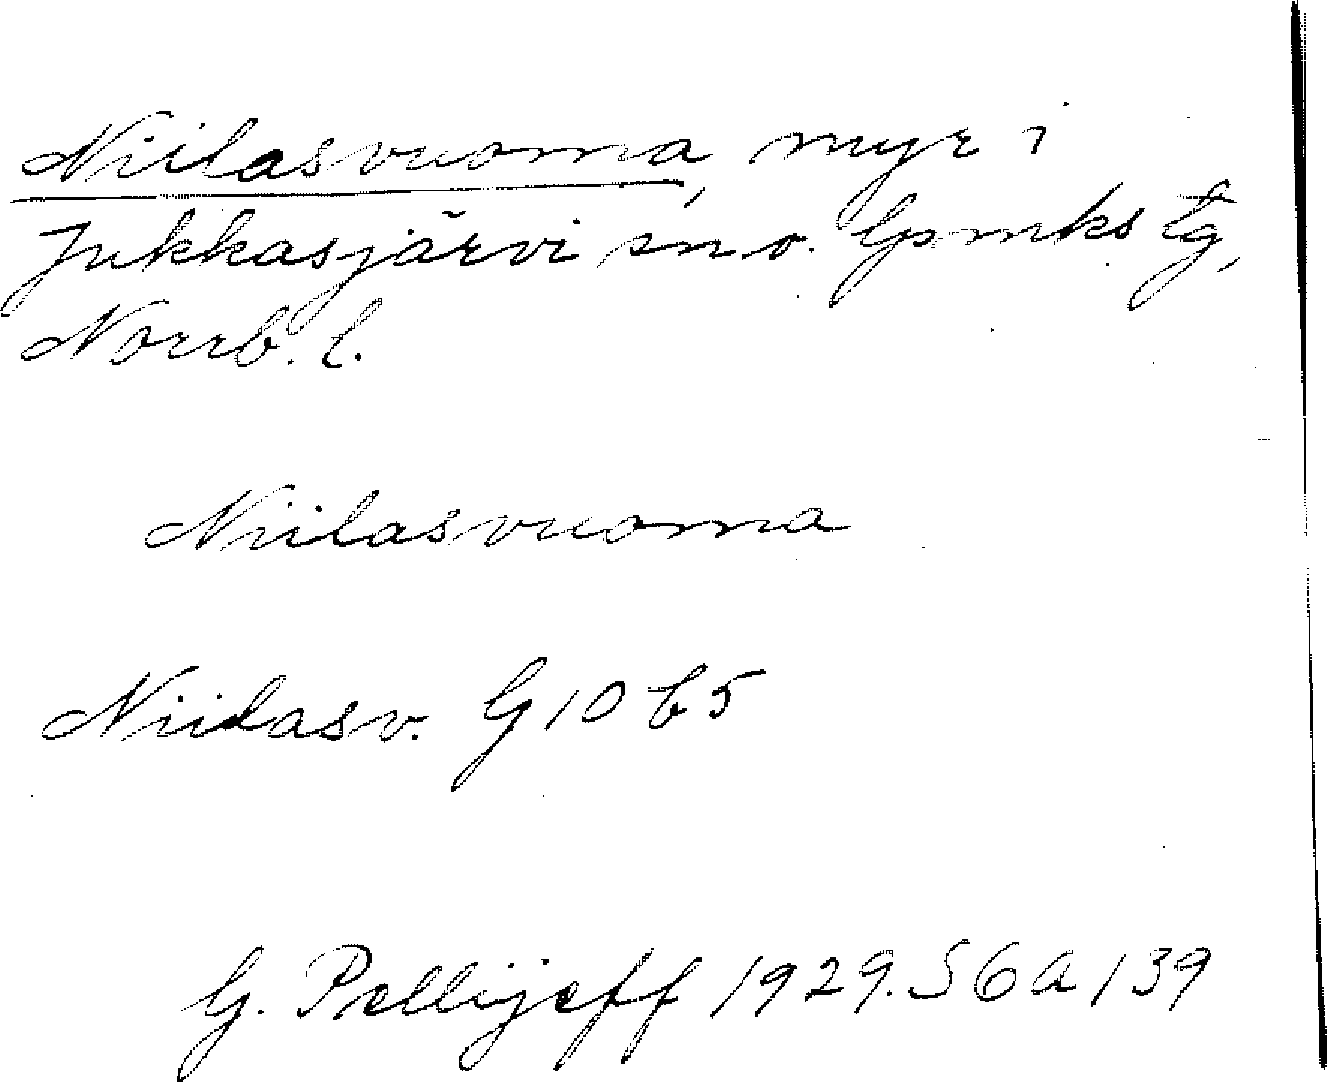 Niilasvuoma, myr i
Jukkasjärvi sn o. Gpmks tg,
Norrb. l.
Niilasvuoma
Niilasv. G 10 b 5
G. Pellijeff 1929. S 6 a 139